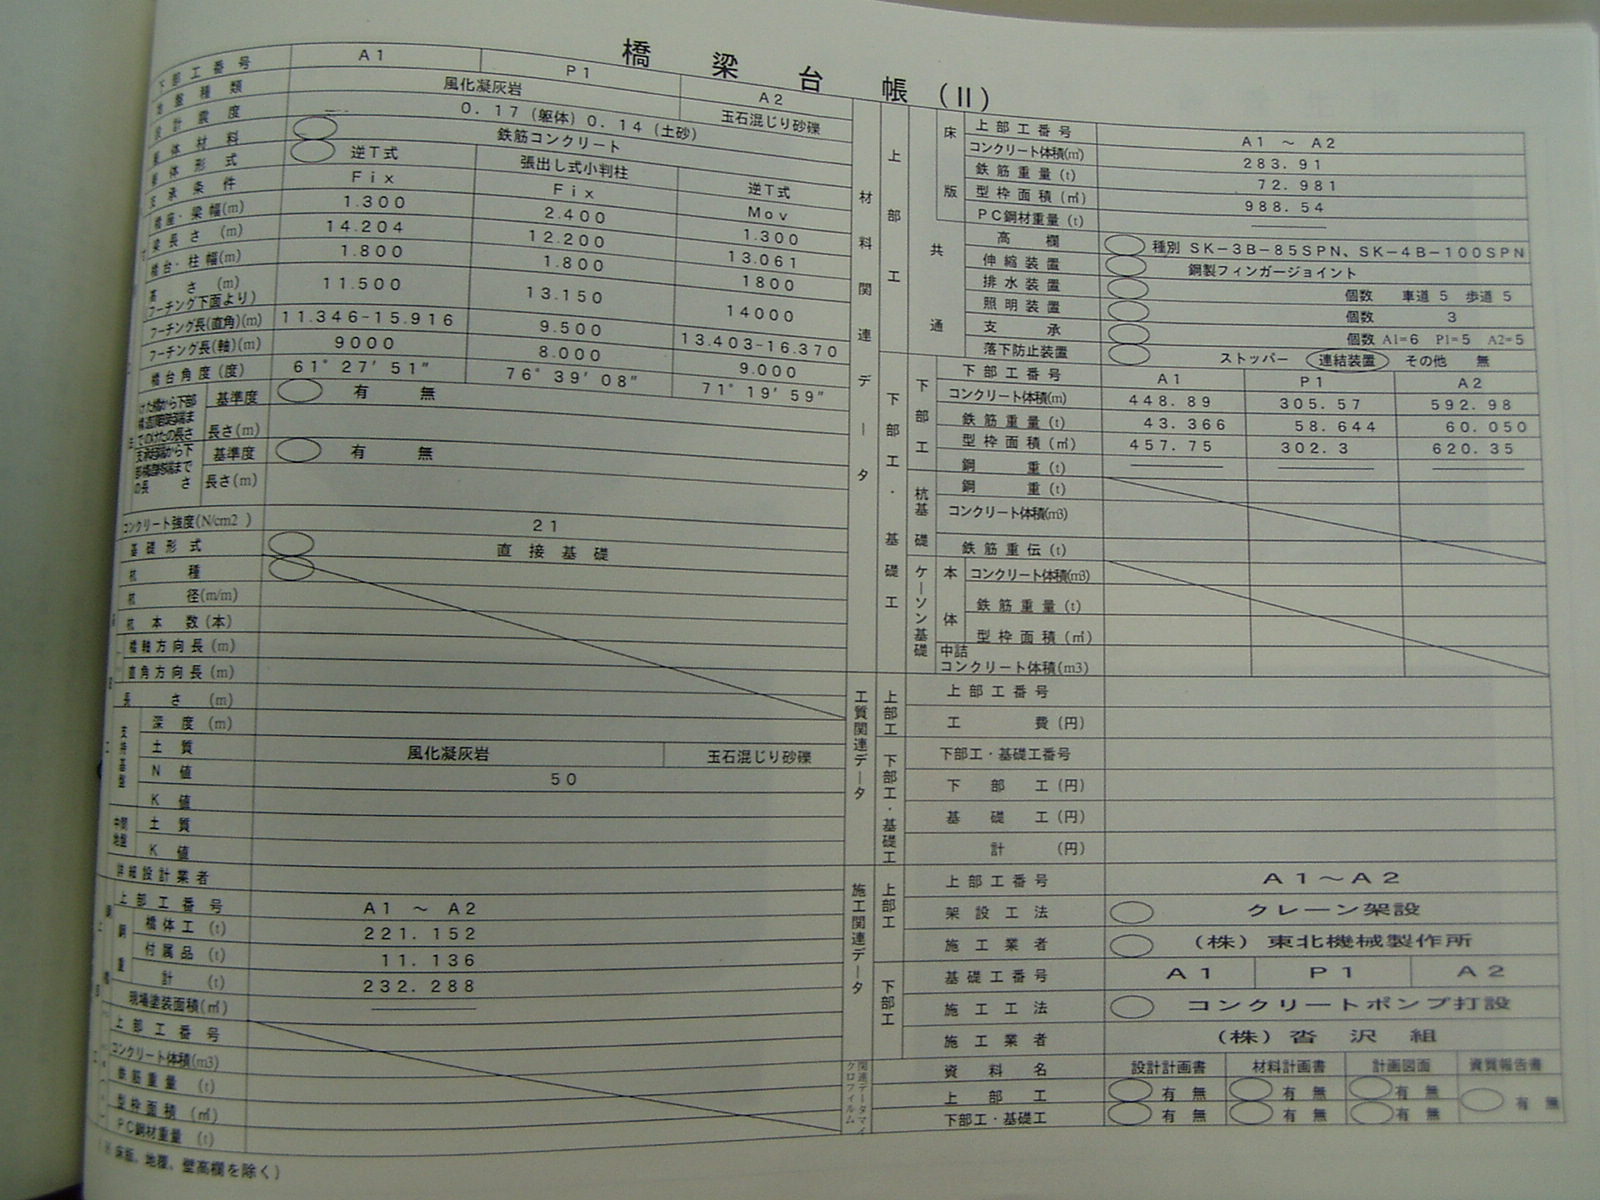 橋梁台帳(II)
下部工番号 A1 P1 A2
地盤種類 風化凝灰岩 玉石混じり砂礫
設計震度 0.17(躯体)0.14(土砂)
躯体材料 鉄筋コンクリート
躯体形式 逆T式 張出し式小判柱 逆T式
支承条件 Fix Fix Mov
橋座・梁幅(m) 1.300 2.400 1.300
梁長さ(m) 14.204 12.200 13.061
橋台・柱幅(m) 1.800 1.800 1800
高さ(m)
フーチング下面より) 11.500 13.150 14000
フーチング長(直角)(m) 11.346-15.916 9.500 13.403-16.370
フーチング長(軸)(m) 9000 8.000 9.000
橋台角度(度) 61°27′51″ 76°39′08″ 71°19′59″
基準度 有 無
長さ(m)
基準度 有 無
長さ(m)
コンクリート強度(N/cm2) 21
基礎形式 直接基礎
杭種
杭径(m/m)
杭本数(本)
橋軸方向長(m)
直角方向長(m)
長さ(m)
支持基盤
深度(m)
土質 風化凝灰岩 玉石混じり砂礫
N値 50
K値
中間地盤
土質
K値
詳細設計業者
上部工番号 A1 ~ A2
鋼重
橋体工(t) 221.152
付属品(t) 11.136
計(t) 232.288
現場塗装面積(㎡)
上部工番号
コンクリート体積(m3)
鉄筋重量(t)
型枠面積(㎡)
PC鋼材重量(t)
床版、地覆、壁高欄を除く)
材料関連データ
上部工
床版
上部工番号 A1 ~ A2
コンクリート体積(㎥) 283.91
鉄筋重量(t) 72.981
型枠面積(㎡) 988.54
PC鋼材重量(t)
共通
高欄 種別 SK-3B-85SPN、SK-4B-100SPN
伸縮装置 鋼製フィンガージョイント
排水装置 個数 車道 5 歩道 5
照明装置 個数 3
支承 個数 A1=6 P1=5 A2=5
落下防止装置 ストッパー 連結装置 その他 無
下部工・基礎工
下部工
下部工番号 A1 P1 A2
コンクリート体積(m) 448.89 305.57 592.98
鉄筋重量(t) 43.366 58.644 60.050
型枠面積(㎡) 457.75 302.3 620.35
鋼重(t)
杭基礎
鋼重(t)
コンクリート体積(m3)
鉄筋重伝(t)
ケーソン基礎
本体
コンクリート体積(m3)
鉄筋重量(t)
型枠面積(㎡)
中詰
コンクリート体積(m3)
工質関連データ
上部工
上部工番号
工費(円)
下部工・基礎工
下部工・基礎工番号
下部工(円)
基礎工(円)
計(円)
施工関連データ
上部工
上部工番号 A1~A2
架設工法 クレーン架設
施工業者 (株)東北機械製作所
下部工
基礎工番号 A1 P1 A2
施工工法 コンクリートポンプ打設
施工業者 (株)沓沢組
関連データマイクロフィルム
資料名 設計計画書 材料計画書 計画図面 資質報告書
上部工 有 無 有 無 有 無 有 無
下部工・基礎工 有 無 有 無 有 無